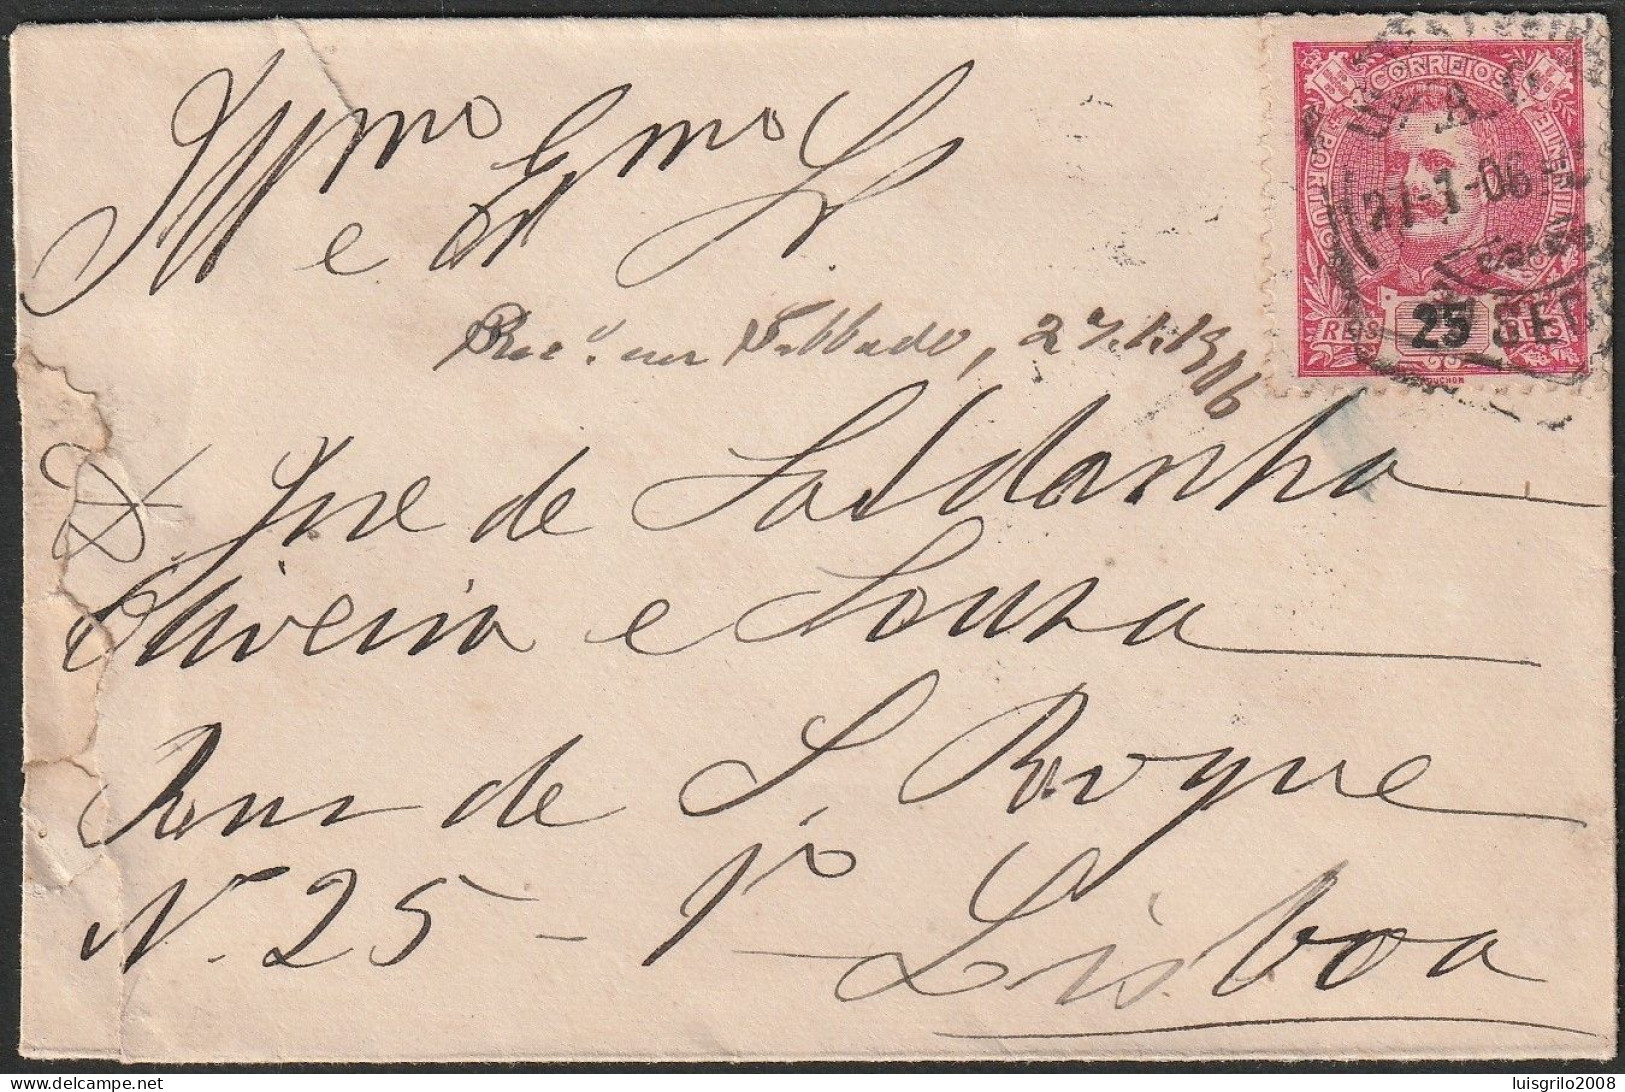 Illmo Exmo Sr
e
CORREIOS
21-1-06
25
REIS REIS
MOUCHON
Rec.º em Sabbado, 27.1.1906
D. José de Saldanha
Oliveira e Souza
Rua de S. Roque
Nº 25 - 1º
Lisboa
luisgrilo2008